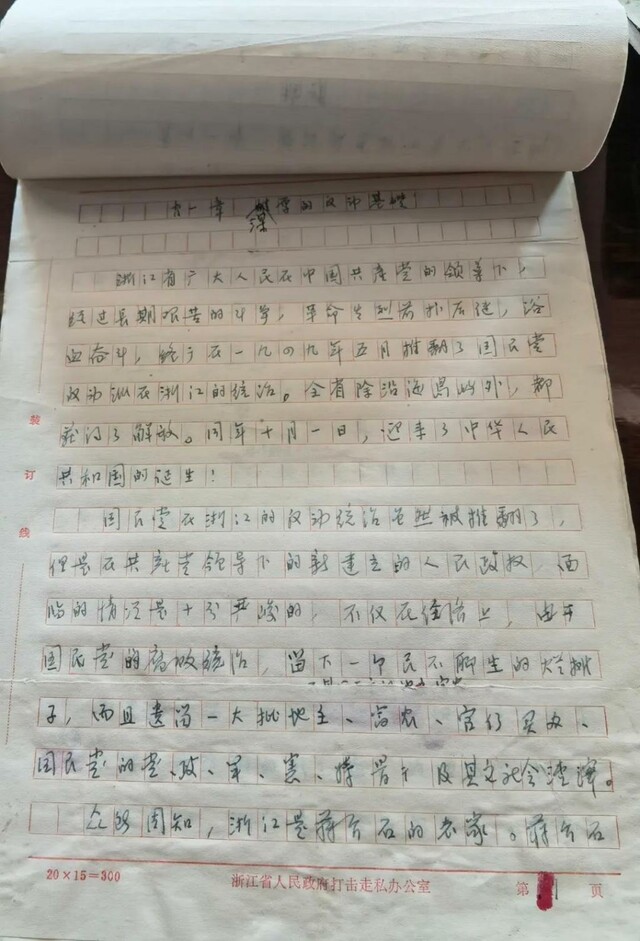 六一年 的反动其他
浙江省广大人民在中国共产党的领导下，
经过长期艰苦的斗争，革命先烈前扑后继，浴
血奋斗，终于在一九四九年五月推翻了国民党
反动派在浙江的统治。全省除沿海岛屿外，都
获得了解放。同年十月一日，迎来了中华人民
共和国的诞生！
国民党在浙江的反动统治虽然被推翻了，
但是在共产党领导下的新建立的人民政权，面
临的情况是十分严峻的，不仅在经济上，由于
国民党的腐败统治，留下一个民不聊生的烂摊
子，而且遗留一大批地主、富农、官僚买办、
国民党的党、政、军、宪、特骨干及其它社会渣滓。
众所周知，浙江是蒋介石的老家。蒋介石
装
订
线
20×15=300
浙江省人民政府打击走私办公室
第 页